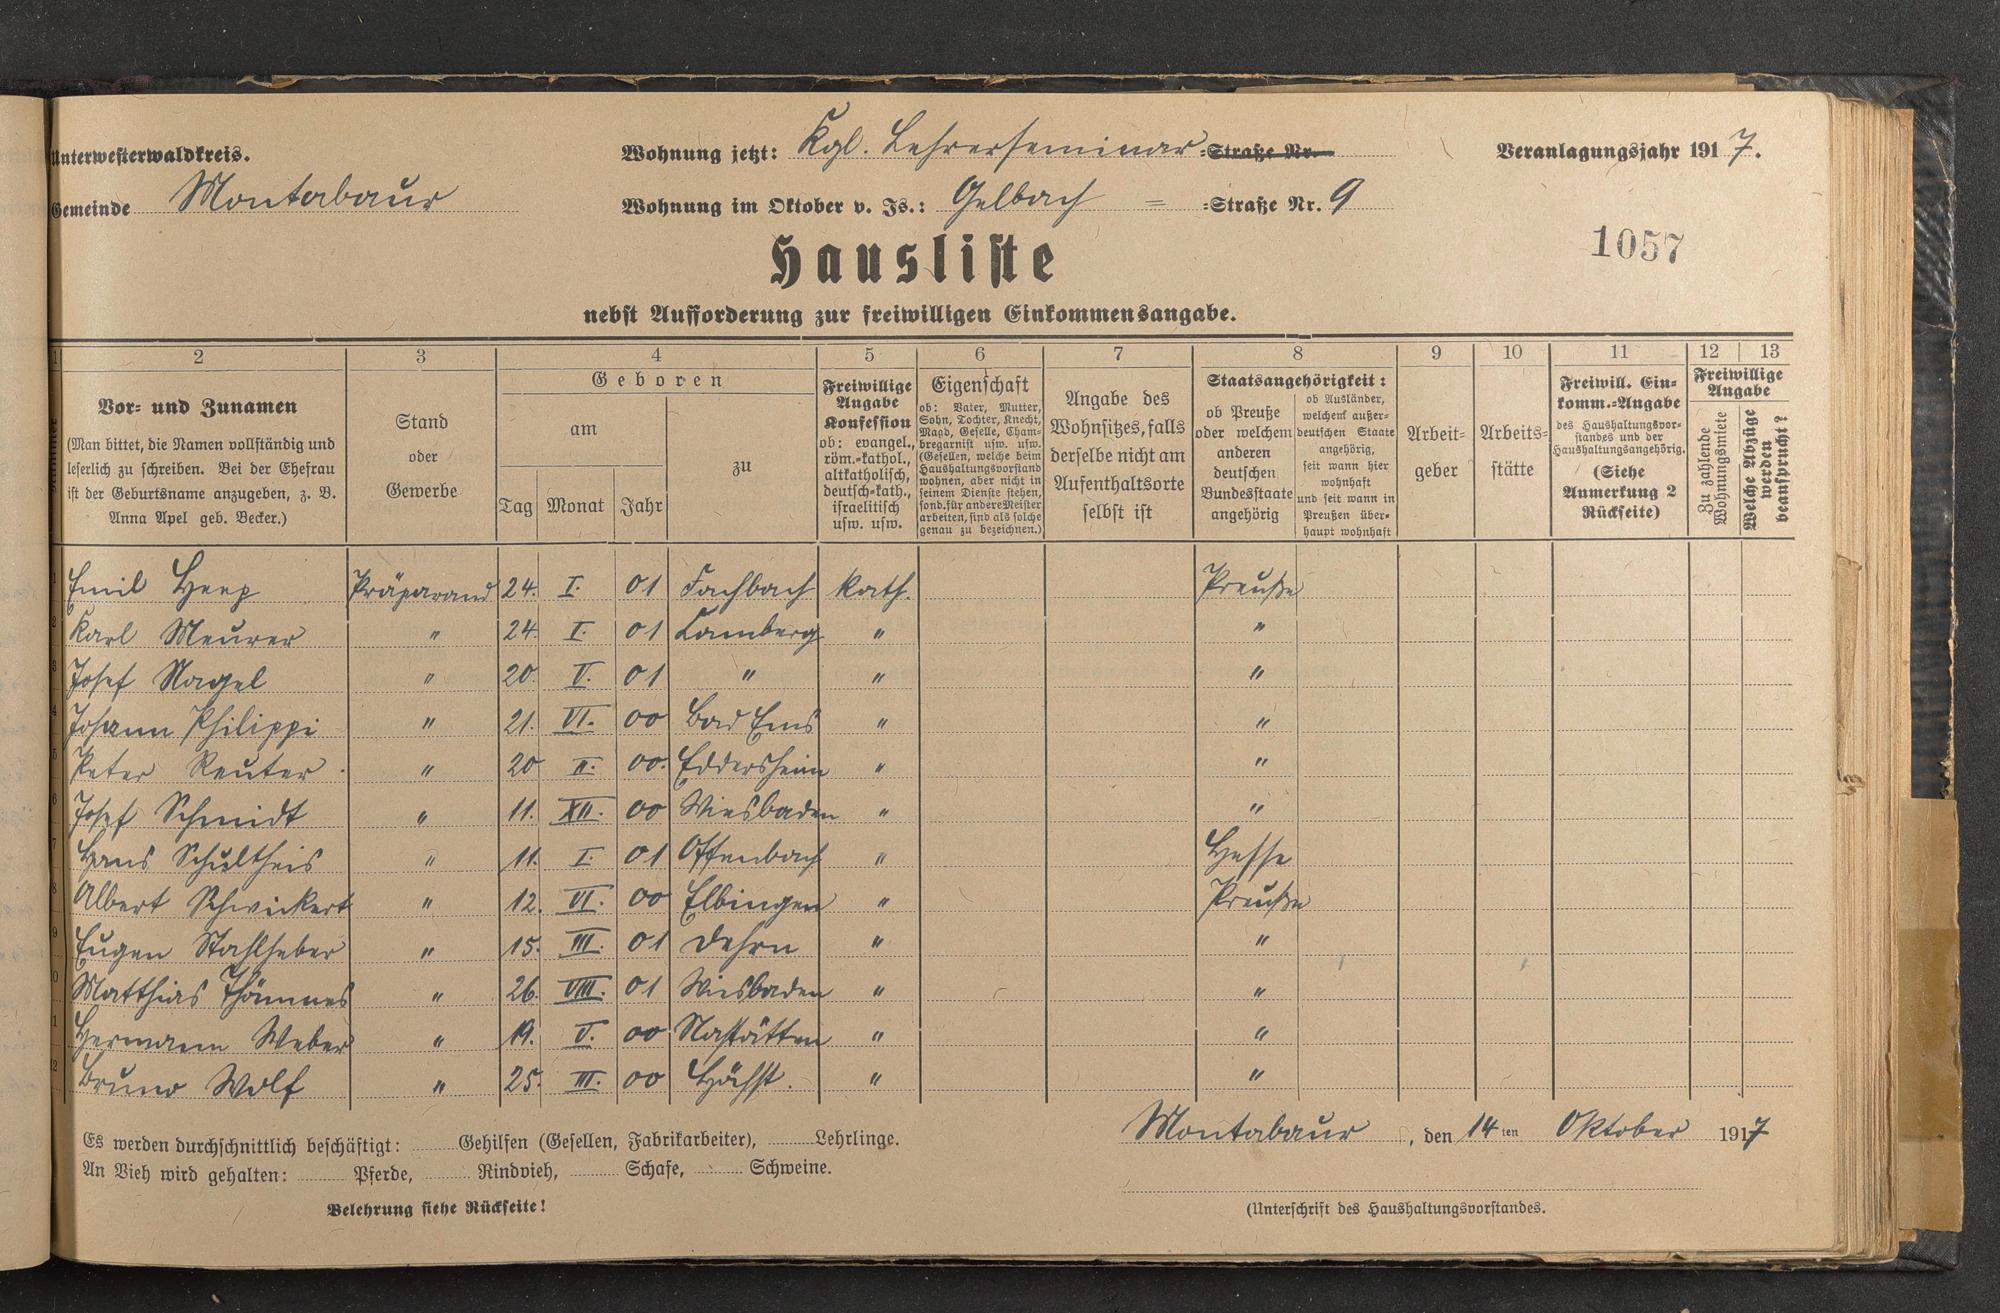 Unterwesterwaldkreis.
Wohnung jetzt: Kgl. Lehrerseminar =Straße Nr.
Veranlagungsjahr 1917.
Gemeinde Montabaur
Wohnung im Oktober v. Js.: Gelbach = =Straße Nr. 9
1057
Hausliste
nebst Aufforderung zur freiwilligen Einkommensangabe.
1 2 3 4 5 6 7 8 9 10 11 12 13
Nummer
Vor- und Zunamen
(Man bittet, die Namen vollständig und
leserlich zu schreiben. Bei der Ehefrau
ist der Geburtsname anzugeben, z. B.
Anna Apel geb. Becker.)
Stand
oder
Gewerbe
Geboren
am
Tag Monat Jahr
zu
Freiwillige
Angabe
Konfession
ob: evangel.,
röm.-kathol.,
altkatholisch,
deutsch-kath.,
israelitisch
usw. usw.
Eigenschaft
ob: Vater, Mutter,
Sohn, Tochter, Knecht,
Magd, Geselle, Cham-
bregarnist usw. usw.
(Gesellen, welche beim
Haushaltungsvorstand
wohnen, aber nicht in
seinem Dienste stehen,
sond. für andere Meister
arbeiten, sind als solche
genau zu bezeichnen.)
Angabe des
Wohnsitzes, falls
derselbe nicht am
Aufenthaltsorte
selbst ist
Staatsangehörigkeit:
ob Preuße
oder welchem
anderen
deutschen
Bundesstaate
angehörig
ob Ausländer,
welchem außer-
deutschen Staate
angehörig,
seit wann hier
wohnhaft
und seit wann in
Preußen über-
haupt wohnhaft
Arbeit-
geber
Arbeits-
stätte
Freiwill. Ein-
komm.-Angabe
des Haushaltungsvor-
standes und der
Haushaltungsangehörig.
(Siehe
Anmerkung 2
Rückseite)
Freiwillige
Angabe
Zu zahlende
Wohnungsmiete
Welche Abzüge
werden
beansprucht?
1 Emil Heep Präparand 24. I. 01 Fachbach kath. Preuße
2 Karl Meurer " 24. I. 01 Camberg " "
3 Josef Nagel " 20. V. 01 " " "
4 Johann Philippi " 21. VI. 00 Bad Ems " "
5 Peter Reuter " 20 II. 00. Eddersheim " "
6 Josef Schmidt " 11. XII. 00 Wiesbaden " "
7 Hans Schultheis " 11. I. 01 Offenbach " Hesse
8 Albert Schwickert " 12. VI. 00 Elbingen " Preuße
9 Eugen Stahlheber " 15. III. 01 Dehrn " "
10 Matthias Thömmes " 26. VIII. 01 Wiesbaden " "
1 Hermann Weber " 19. V. 00 Nastätten " "
12 Bruno Wolf " 25. III. 00 Höchst. " "
Es werden durchschnittlich beschäftigt: Gehilfen (Gesellen, Fabrikarbeiter), Lehrlinge.
Montabaur, den 14ten Oktober 1917
An Vieh wird gehalten: Pferde, Rindvieh, Schafe, Schweine.
Belehrung siehe Rückseite!
(Unterschrift des Haushaltungsvorstandes.